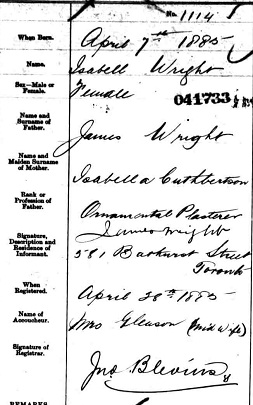 No. 1114
When Born. April 7th 1885
Name. Isabell Wright
Sex—Male or Female. Female
041733
Name and Surname of Father. James Wright
Name and Maiden Surname of Mother. Isabella Cuthbertson
Rank or Profession of Father. Ornamental Plasterer
Signature, Description and Residence of Informant. James Wright
581 Bathurst Street
Toronto
When Registered. April 28th 1885
Name of Accoucheur. Mrs Gleason (Mid Wife)
Signature of Registrar. Jno Blevins
REMARKS.